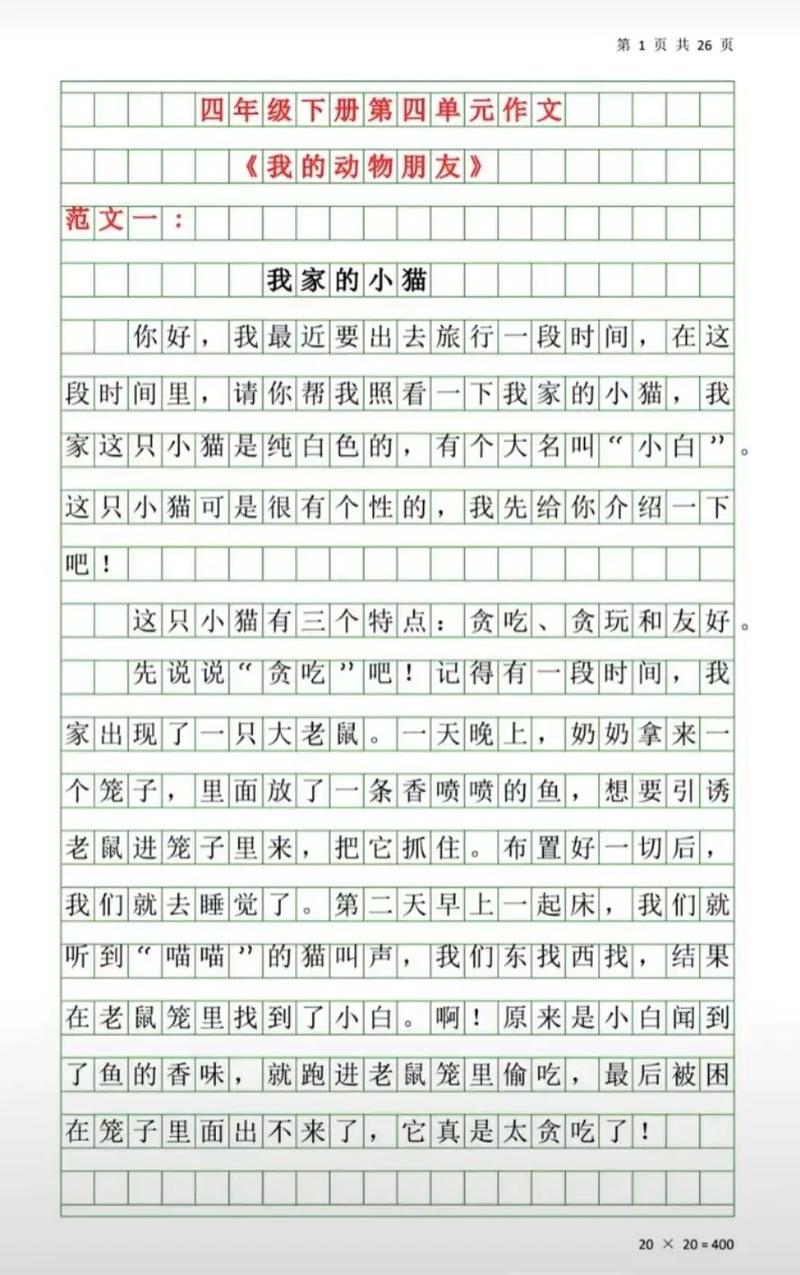 第 1 页 共 26 页
四年级下册第四单元作文
《我的动物朋友》
范文一：
我家的小猫
你好，我最近要出去旅行一段时间，在这
段时间里，请你帮我照看一下我家的小猫，我
家这只小猫是纯白色的，有个大名叫“小白”。
这只小猫可是很有个性的，我先给你介绍一下
吧！
这只小猫有三个特点：贪吃、贪玩和友好。
先说说“贪吃”吧！记得有一段时间，我
家出现了一只大老鼠。一天晚上，奶奶拿来一
个笼子，里面放了一条香喷喷的鱼，想要引诱
老鼠进笼子里来，把它抓住。布置好一切后，
我们就去睡觉了。第二天早上一起床，我们就
听到“喵喵”的猫叫声，我们东找西找，结果
在老鼠笼里找到了小白。啊！原来是小白闻到
了鱼的香味，就跑进老鼠笼里偷吃，最后被困
在笼子里面出不来了，它真是太贪吃了！
20 × 20 = 400